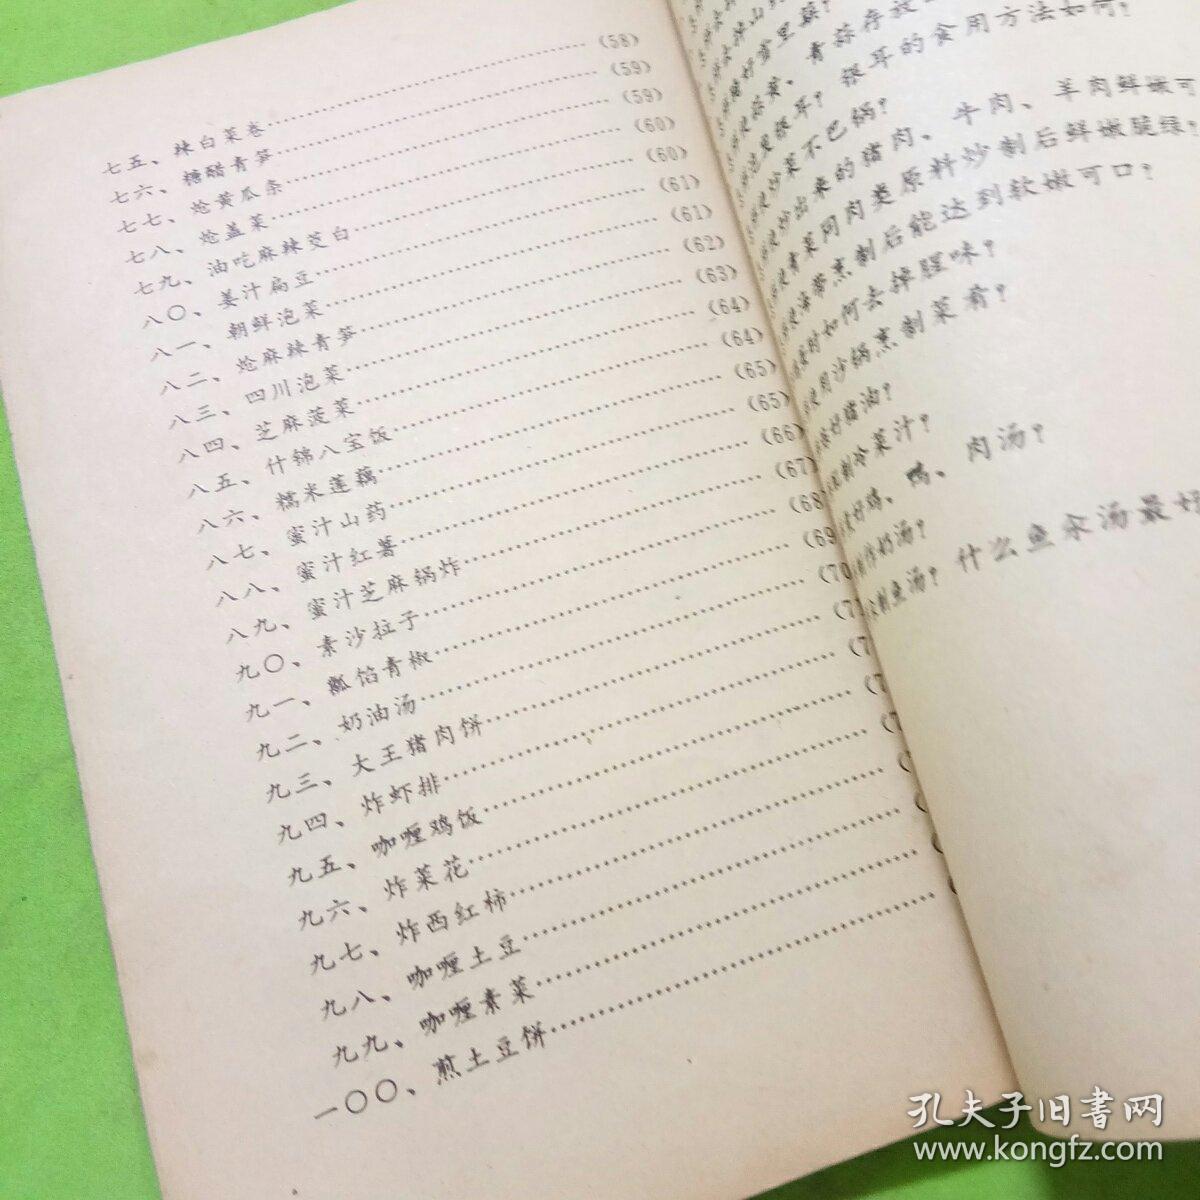 七五、辣白菜卷……(58)
七六、糖醋青笋……(59)
七七、炝黄瓜条……(59)
七八、炝盖菜……(60)
七九、油吃麻辣茭白……(60)
八〇、姜汁扁豆……(61)
八一、朝鲜泡菜……(61)
八二、炝麻辣青笋……(62)
八三、四川泡菜……(63)
八四、芝麻菠菜……(64)
八五、什锦八宝饭……(64)
八六、糯米莲藕……(65)
八七、蜜汁山药……(65)
八八、蜜汁红薯……(66)
八九、蜜汁芝麻锅炸……(67)
九〇、素沙拉子……(68)
九一、瓤馅青椒……(69
九二、奶油汤……(70
九三、大王猪肉饼……(7
九四、炸虾排……(7
九五、咖喱鸡饭……(7
九六、炸菜花……(7
九七、炸西红柿……(
九八、咖喱土豆……(
九九、咖喱素菜……(
一〇〇、煎土豆饼……
雪里蕻?
青蒜存放
银耳?银耳的食用方法如何?
炒菜不巴锅?
炒出来的猪肉、牛肉、羊肉鲜嫩可
青菜同肉类原料炒制后鲜嫩脆绿?
海带烹制后能达到软嫩可口?
时如何去掉腥味?
用沙锅烹制菜肴?
猪油?
制冷菜汁?
好鸡、鸭、肉汤?
奶汤?
制鱼汤?什么鱼汆汤最好
孔夫子旧书网
www.kongfz.com